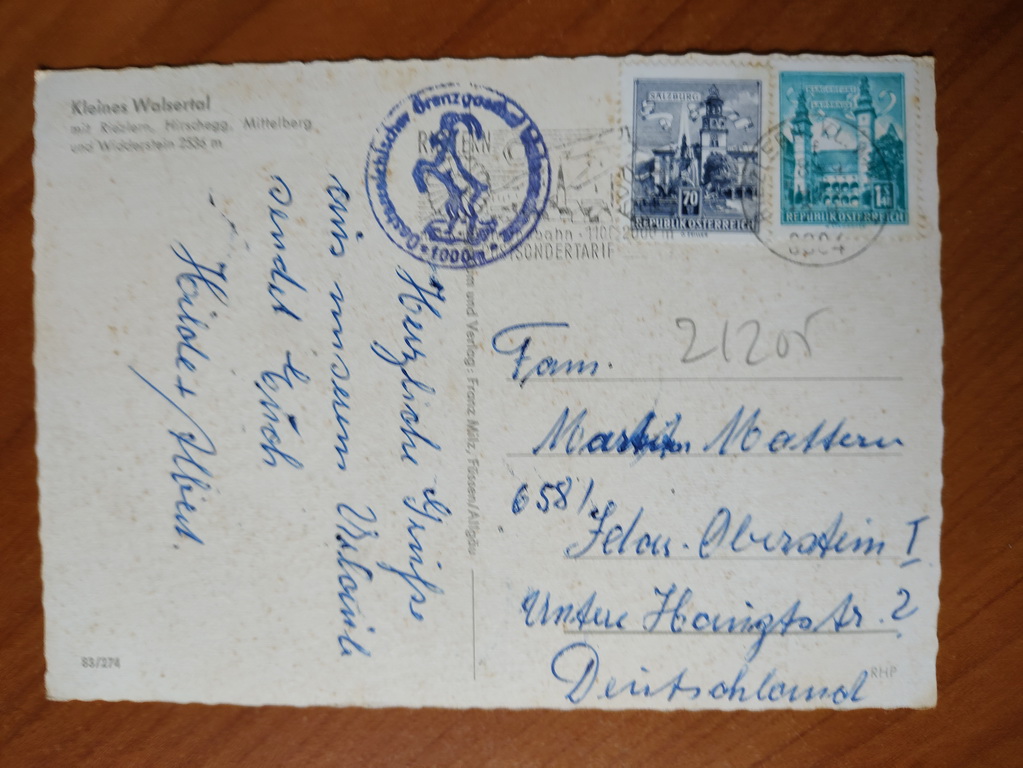 Kleines Walsertal
mit Riezlern, Hirschegg, Mittelberg
und Widderstein 2536 m
Herzliche Grüsse
aus unserem Urlaub
sendet Euch
Hilde + Albert.
Österreichischer Grenzgasthof
1000 m
2000 m
SONDERTARIF
SALZBURG
70
REPUBLIK ÖSTERREICH
REPUBLIK ÖSTERREICH
und Verlag: Franz Milz, Füssen/Allgäu
21205
Fam.
Martin Mattern
6581
Idar-Oberstein I
Untere Hauptstr. 2
Deutschland
83/274
RHP